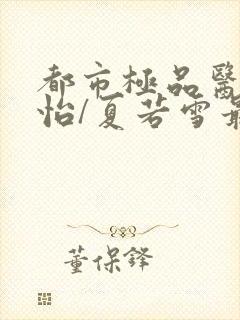 都市極品醫
怡/夏若雪最
董保鋒